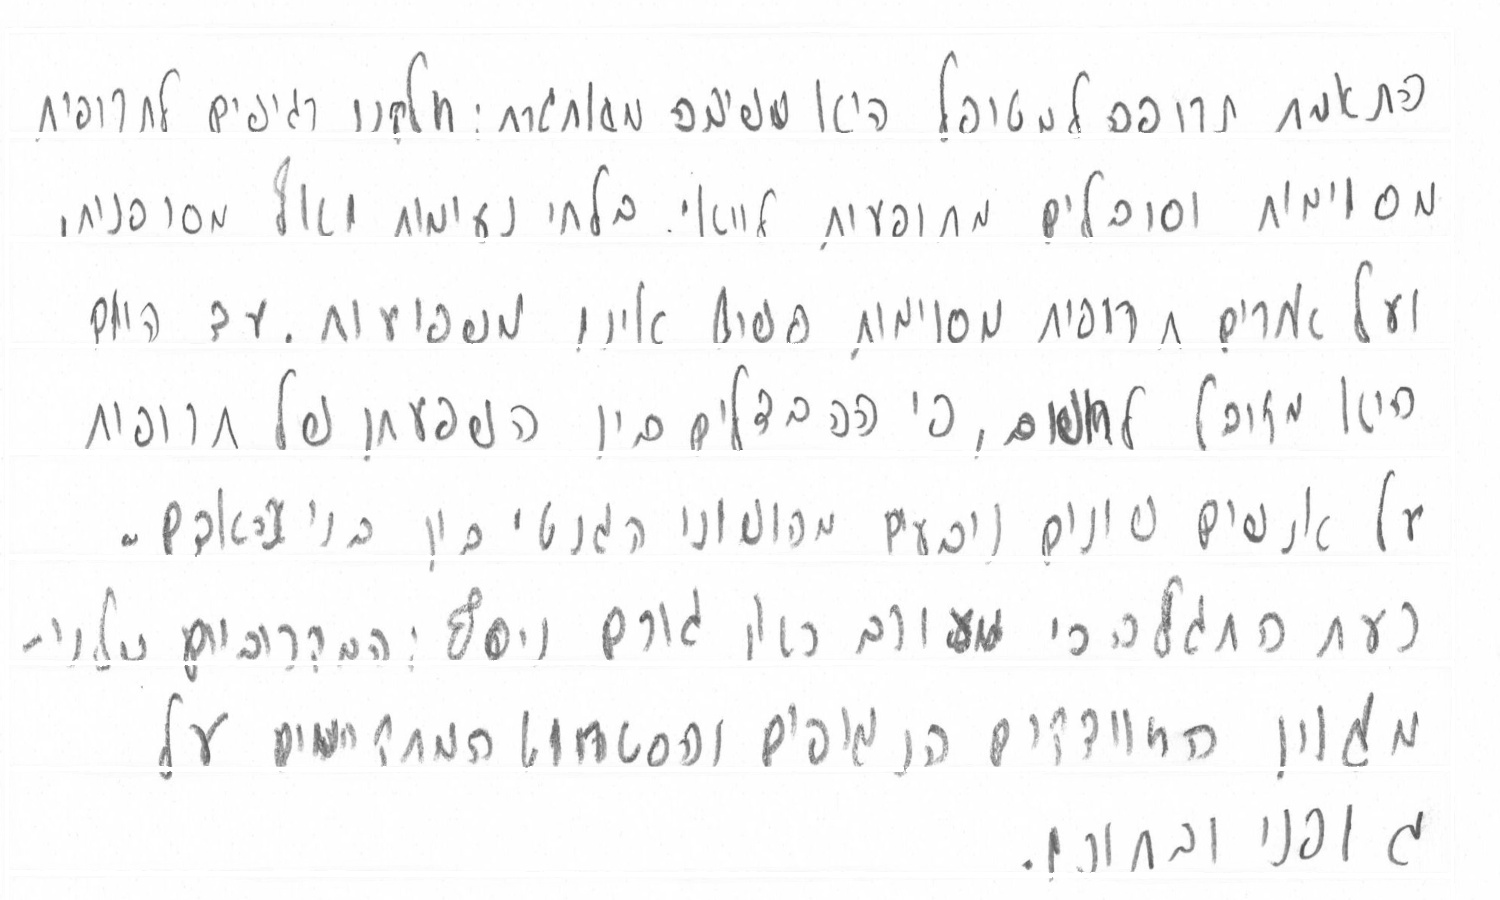 התאמת תרופה למטופל היא משימה מאתגרת: חלקנו רגישים לתרופות
מסוימות וסובלים מתופעות לוואי בלתי נעימות ואף מסוכנות,
ועל אחרים תרופות מסוימות פשוט אינן משפיעות. עד היום
היא מקובל לחשוב, כי ההבדלים בין השפעתן של תרופות
על אנשים שונים נובעים מהשוני הגנטי בין בני האדם.
כעת התגלה כי מעורב כאן גורם נוסף: המיקרוביום שלנו-
מגוון החיידקים הנגיפים והפטריות המתקיימים על
גופנו ובתוכו.